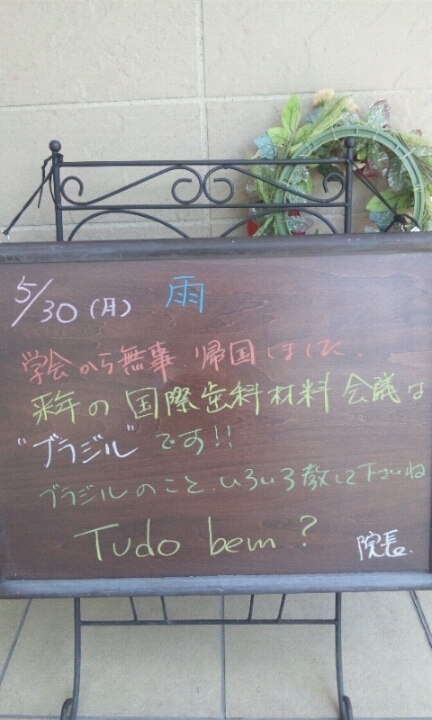 5/30(月) 雨
学会から無事 帰国しました.
来年の国際歯科材料会議は
"ブラジル"です!!
ブラジルのこと、いろいろ教えて下さいね
Tudo bem?
院長.